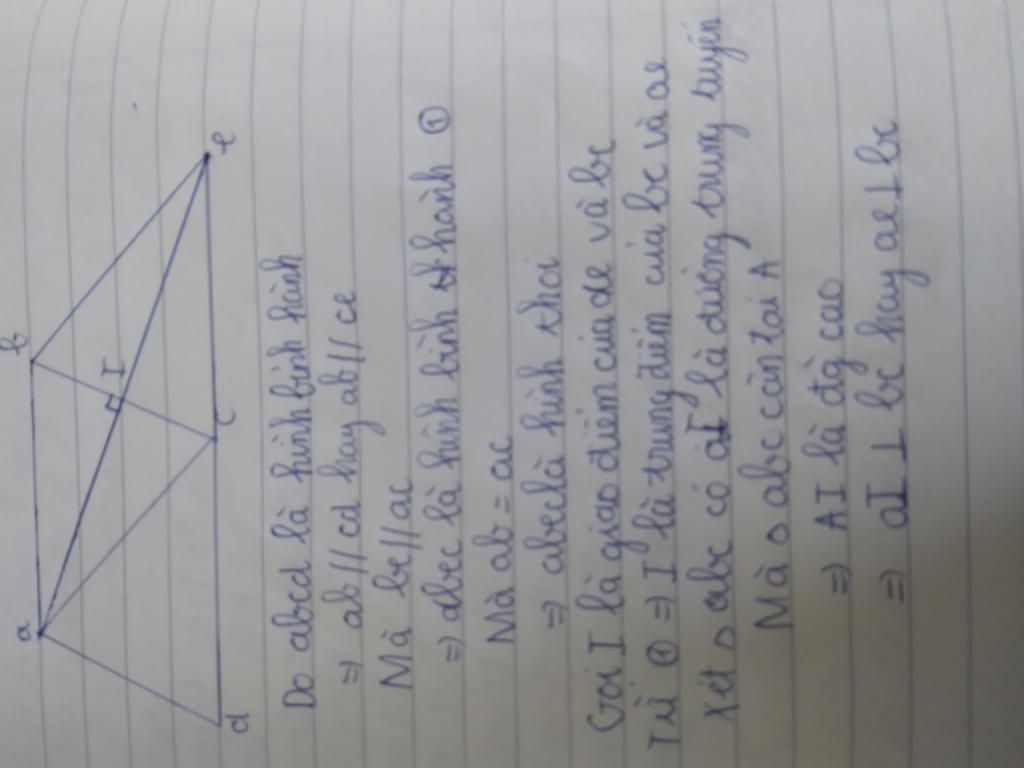 a
b
I
d
c
e
Do abcd là hình bình hành
=> ab // cd hay ab // ce
Mà be // ac
=> abec là hình bình hành ①
Mà ab = ac
=> abec là hình thoi
Gọi I là giao điểm của de và bc
Từ ① => I là trung điểm của bc và ae
Xét △ abc có aI là đường trung tuyến
Mà △ abc cân tại A
=> AI là đg cao
=> aI ⊥ bc hay ae ⊥ bc